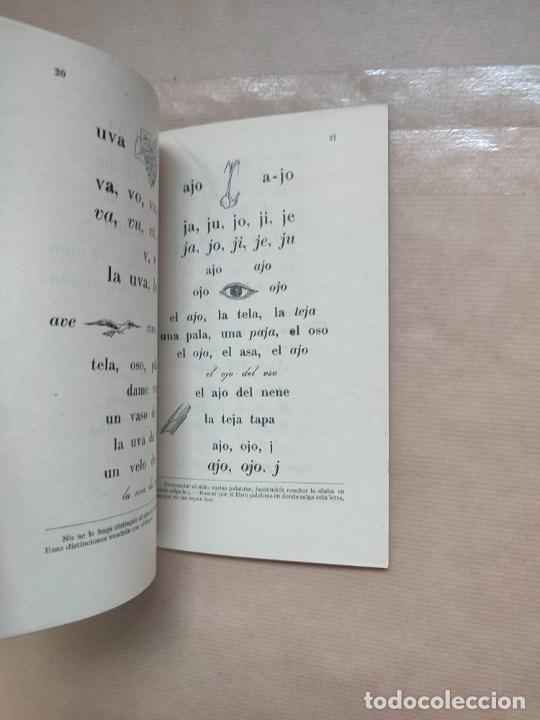 20
uva
va, vo,
va, vu,
v,
la uva,
ave
tela, oso,
dame
un vaso de
la uva da
un velo de
la uva da
No se le haga distinguir
Esas distinciones vendrán con el
21
ajo a-jo
ja, ju, jo, ji, je
ja, jo, ji, je, ju
ajo ajo
ojo ojo
el ajo, la tela, la teja
una pala, una paja, el oso
el ojo, el asa, el ajo
el ojo del oso
el ajo del nene
la teja tapa
ajo, ojo, j
ajo, ojo, j
Pronunciar el niño varias palabras, haciéndole resaltar la sílaba en
donde salga la j.—Buscar por el libro palabras en donde salga esta letra,
aunque no las sepan leer.
todocoleccion.net